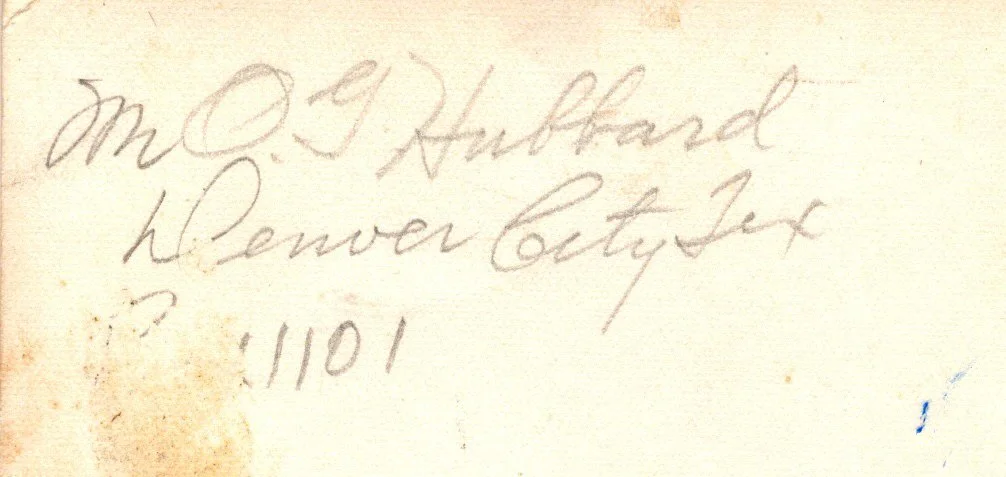 M O. G Hubbard
Denver City Tex
1101